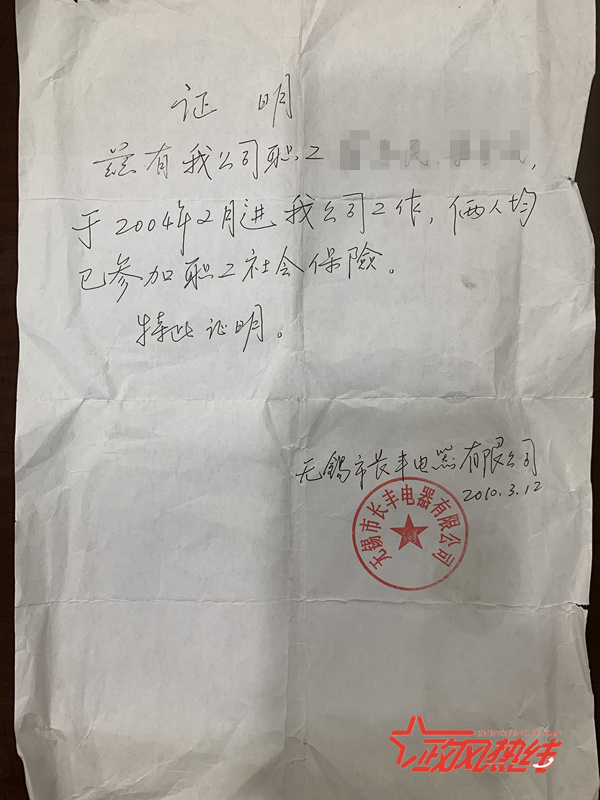 证 明
兹有我公司职工
于2004年2月进我公司工作，俩人均
已参加职工社会保險。
特此证明。
无锡市长丰电器有限公司
2010.3.12
无锡市长丰电器有限公司
政风热线